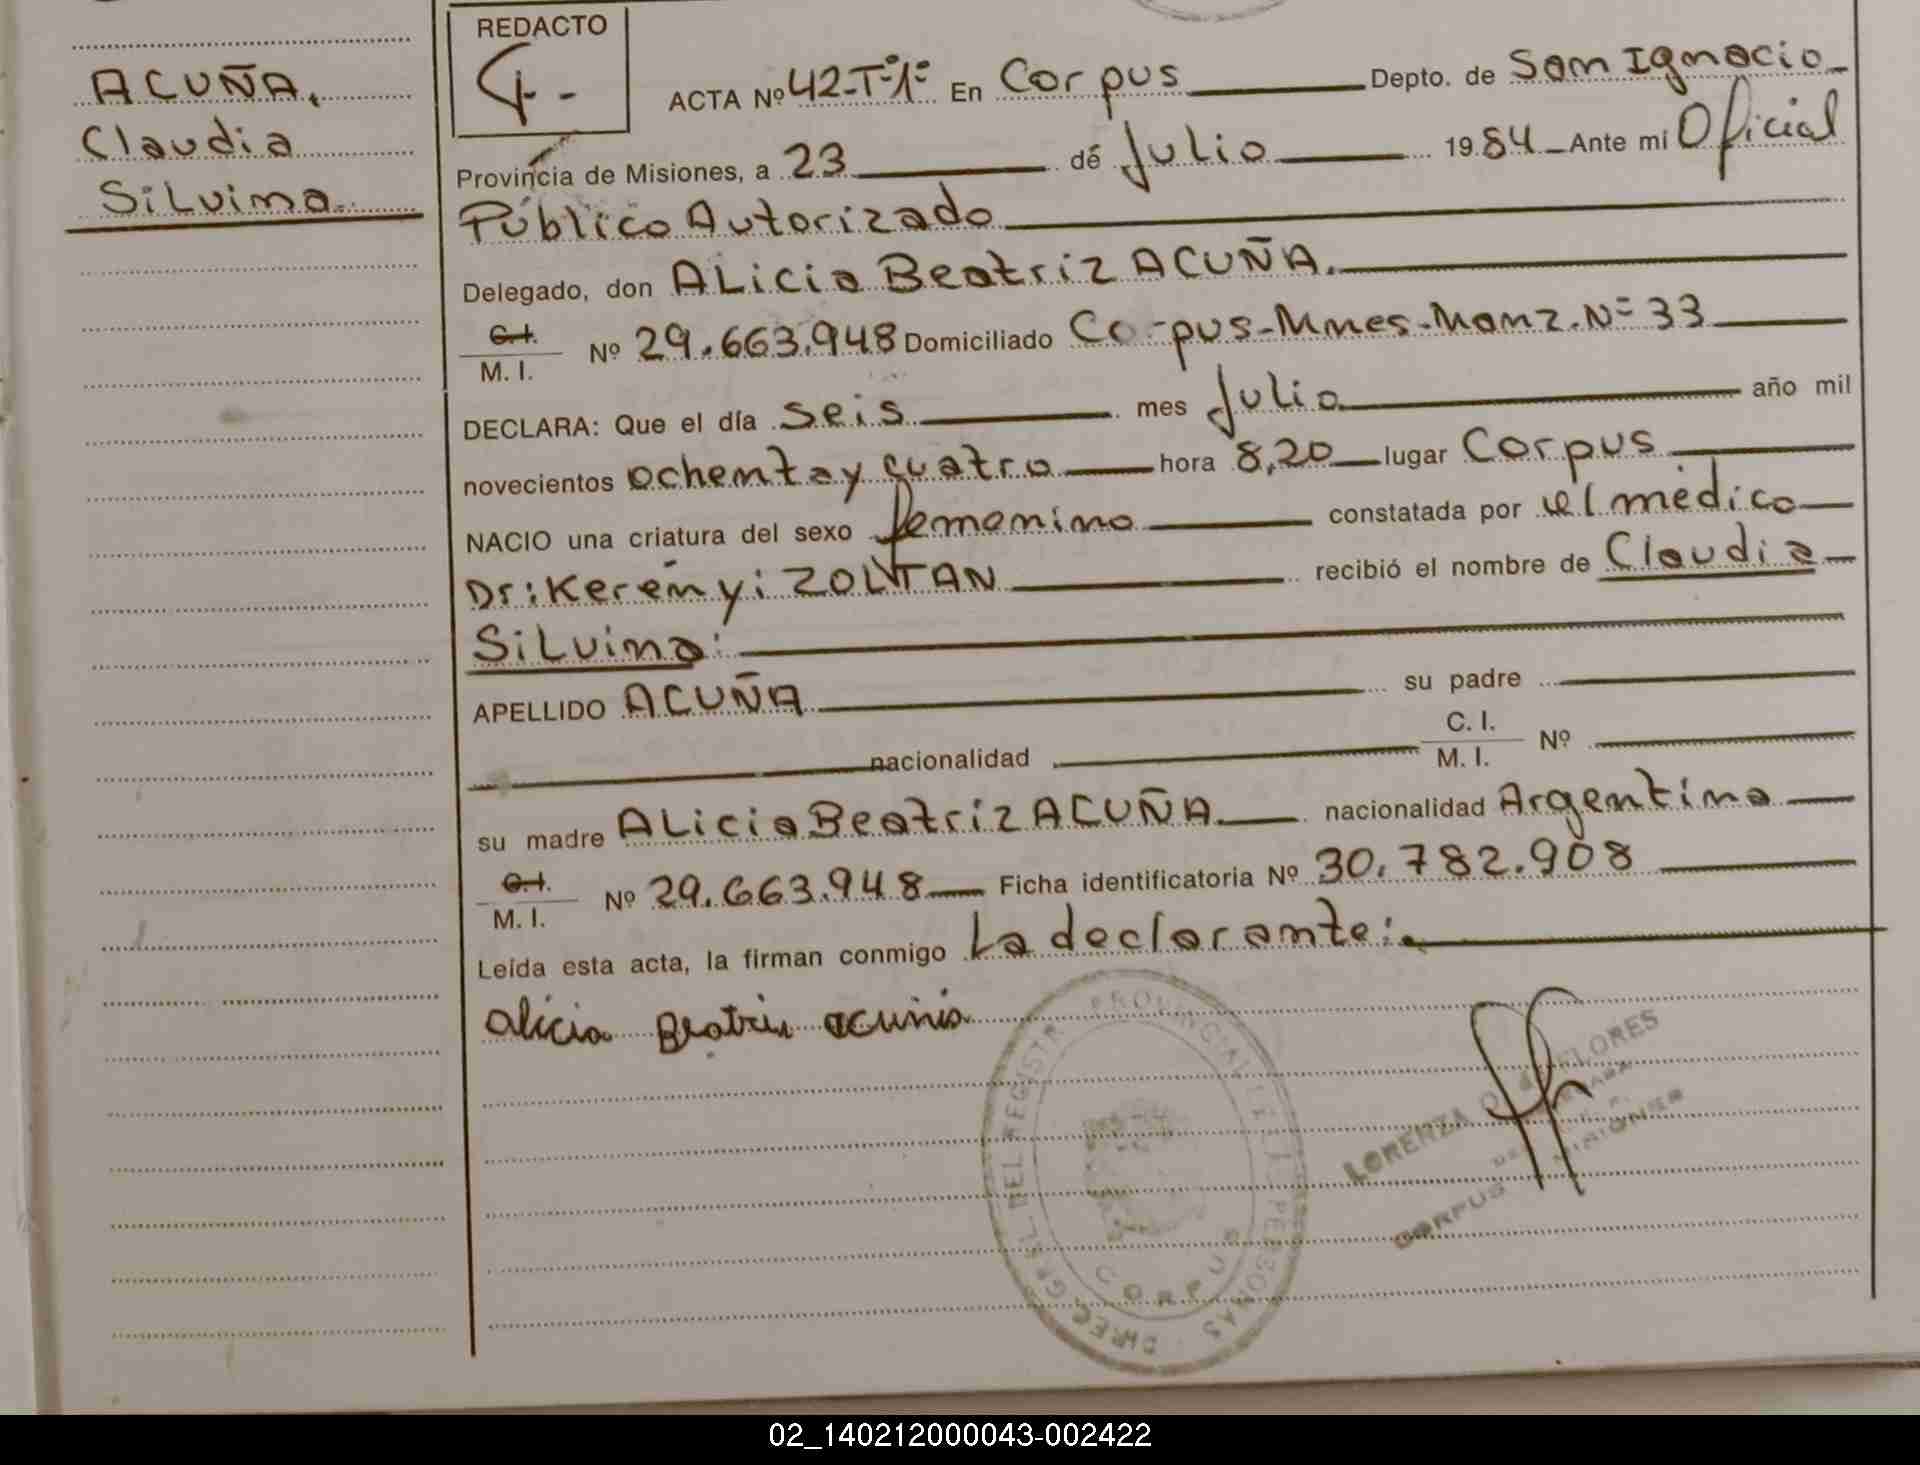 ACUÑA,
Claudia
Silvina.
REDACTO
ACTA Nº 42-Tº1º En Corpus Depto. de San Ignacio
Provincia de Misiones, a 23 de Julio 1984 Ante mi Oficial
Público Autorizado
Delegado, don ALicia Beatriz ACUÑA.
C.I.
M. I. Nº 29.663.948 Domiciliado Corpus-Mnes-Manz.Nº 33
DECLARA: Que el día seis mes Julio año mil
novecientos ochenta y cuatro hora 8,20 lugar Corpus
NACIO una criatura del sexo femenino constatada por el médico
Dr: Kerenyi ZOLTAN recibió el nombre de Claudia
Silvina:
APELLIDO ACUÑA su padre
nacionalidad C. I.
M. I. Nº
su madre ALicia Beatriz ACUÑA. nacionalidad Argentina
C.I.
M. I. Nº 29.663.948 Ficha identificatoria Nº 30.782.908
Leída esta acta, la firman conmigo La declarante:
alicia Beatriz acunia
DIREC. GRAL. DEL REGISTR PROVINCIAL DE LAS PERSONAS
CORPUS
LORENZA FLORES
CORPUS MISIONES
02_140212000043-002422